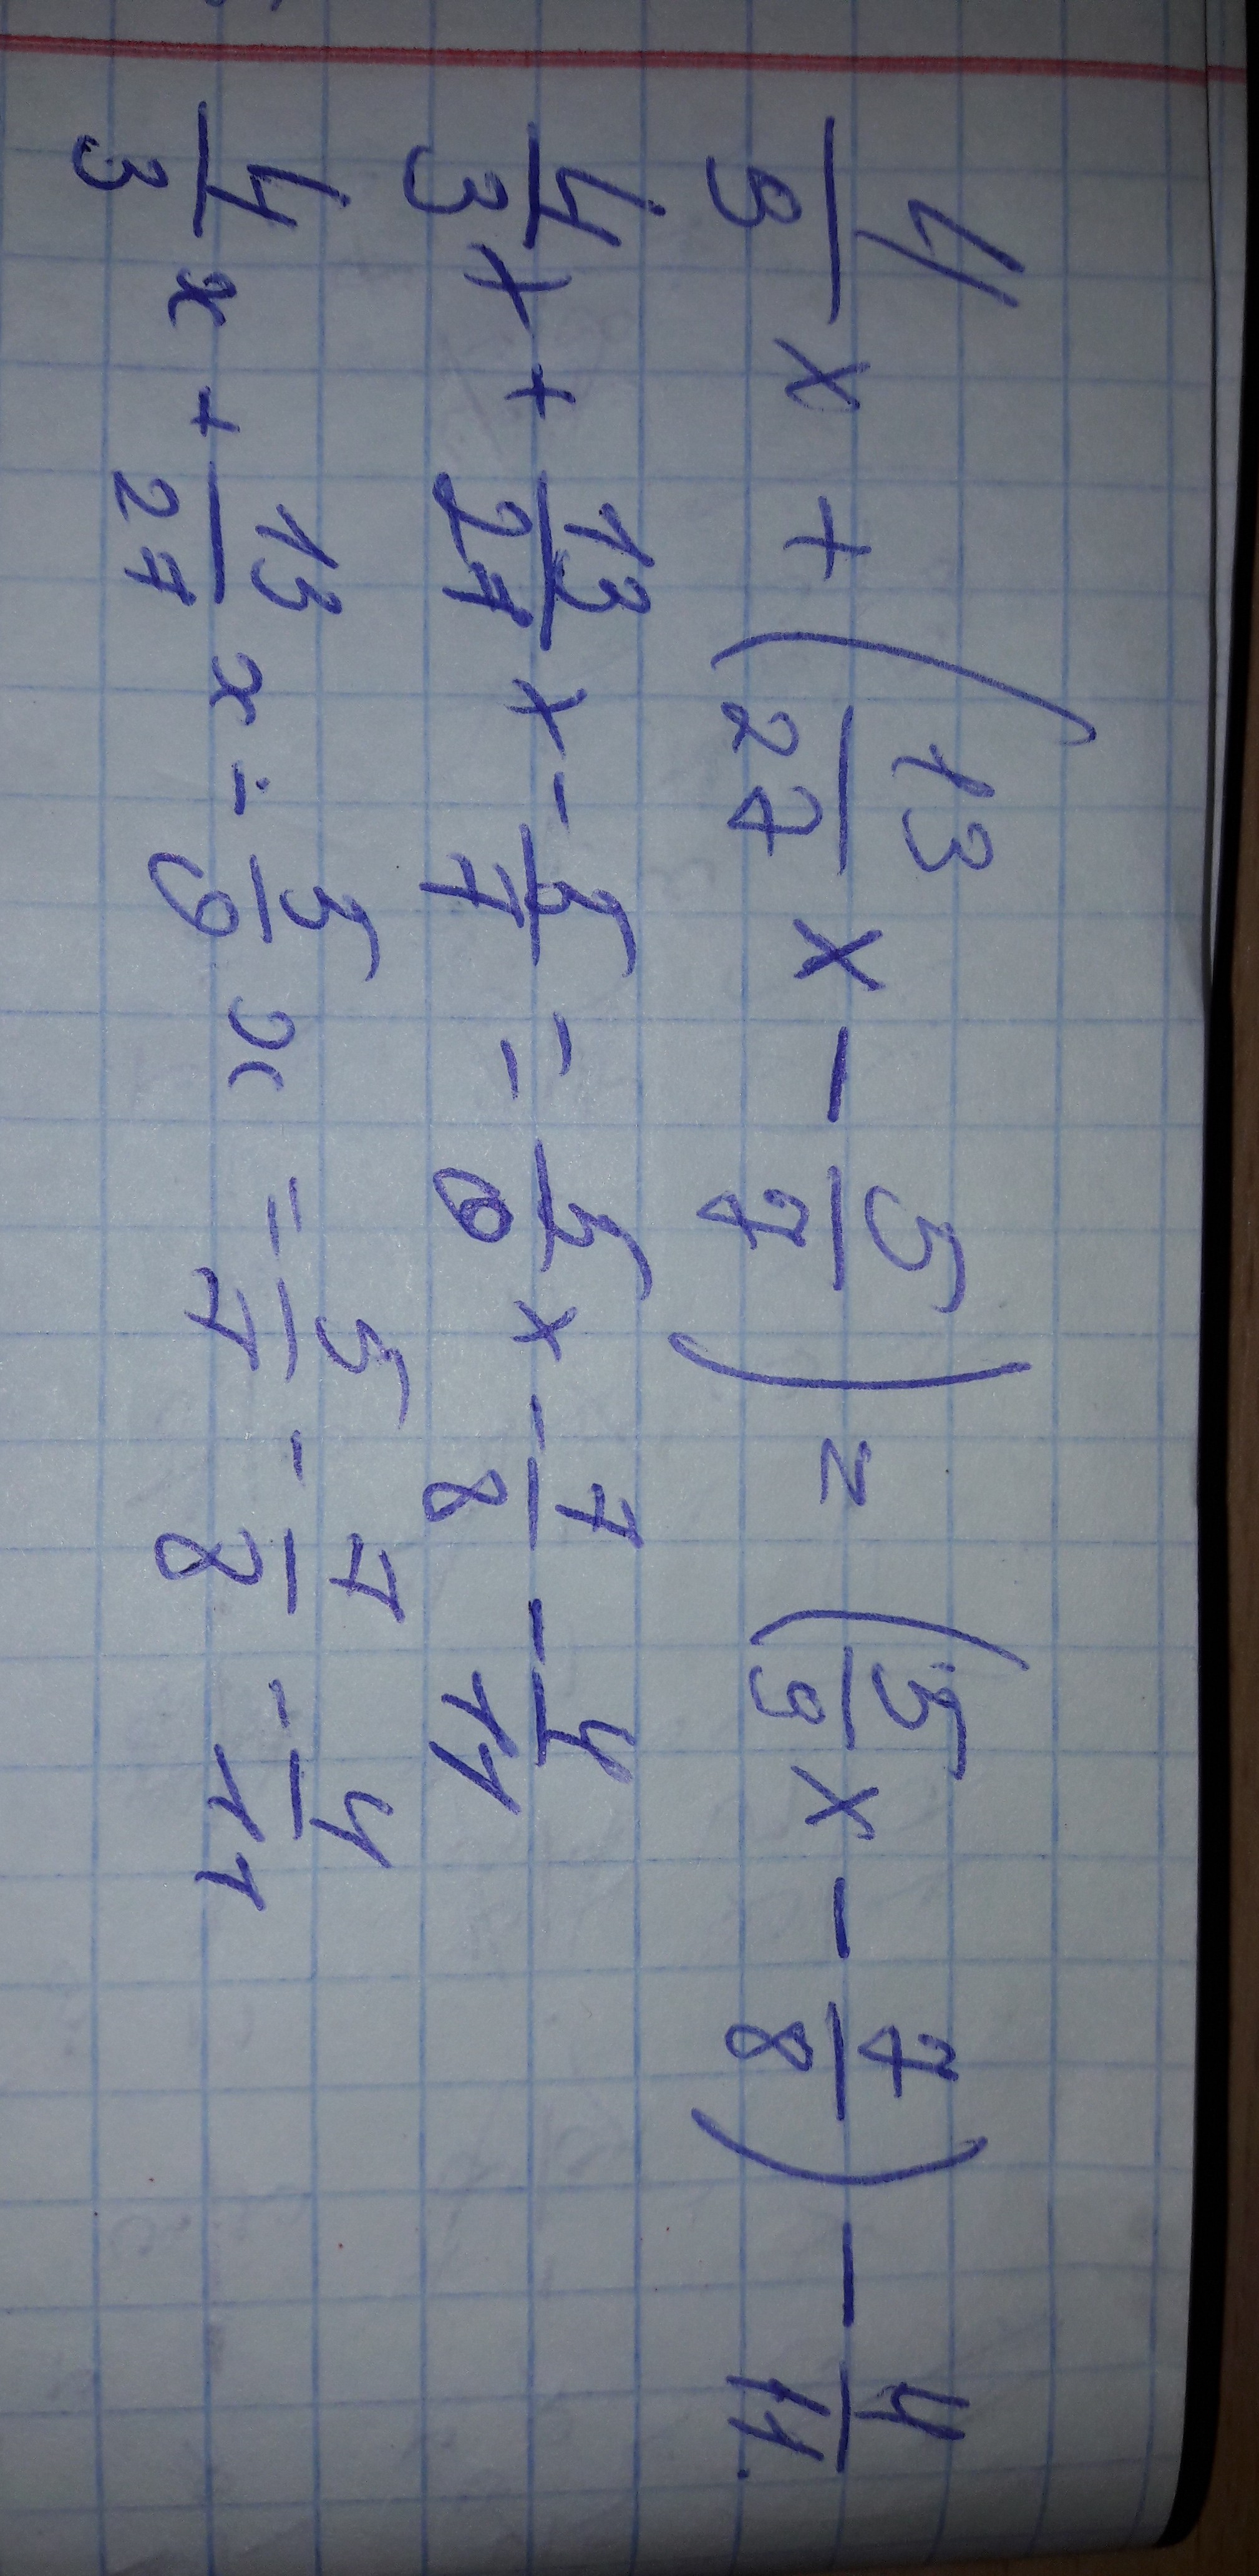 4/9 x + (13/27 x - 5/7) = (5/9 x - 7/8) - 4/11.
4/3 x + 13/27 x - 5/7 = 5/9 x - 7/8 - 4/11
4/3 x + 13/27 x - 5/9 x = 5/7 - 7/8 - 4/11